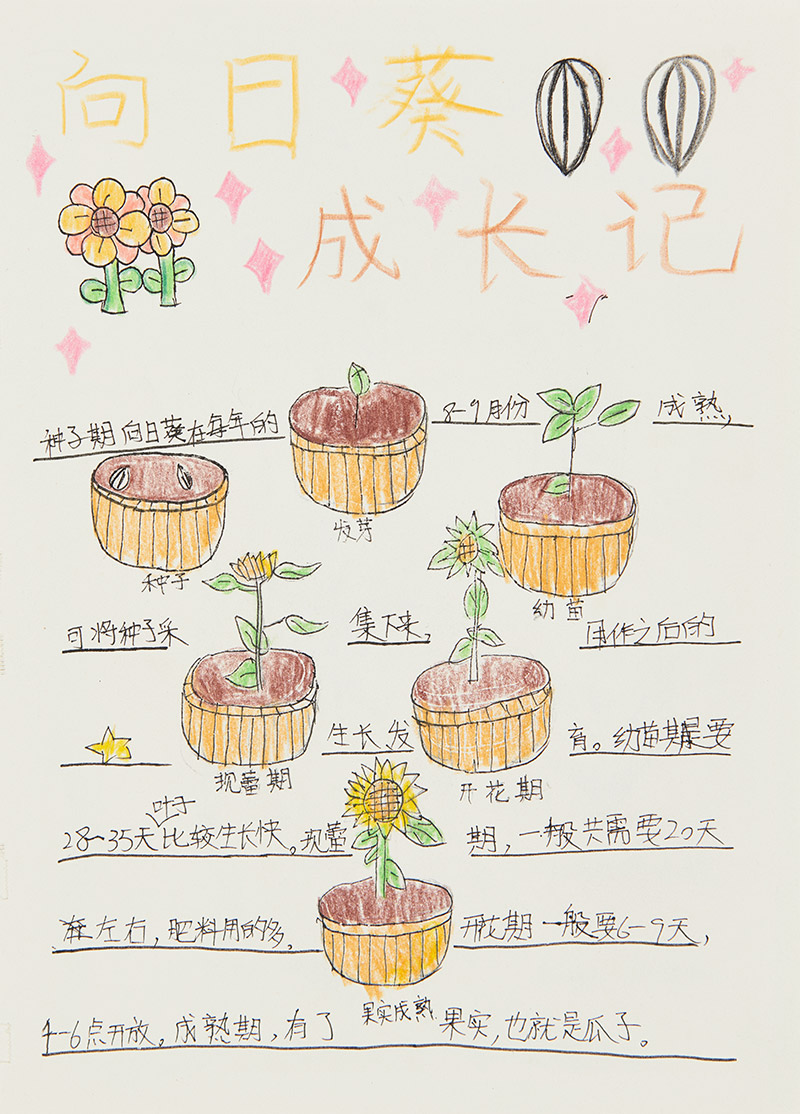 向日葵
成长记
种子期向日葵在每年的 8-9月份 成熟,
种子
发芽
幼苗
可将种子采 集下来, 用作之后的
生长发 育。幼苗期是要
现蕾期
开花期
叶子
28~35天比较生长快。现蕾 期,一般共需要20天
左右,肥料用的多, 开花期一般要6-9天,
果实成熟
4-6点开放。成熟期,有了 果实,也就是瓜子。